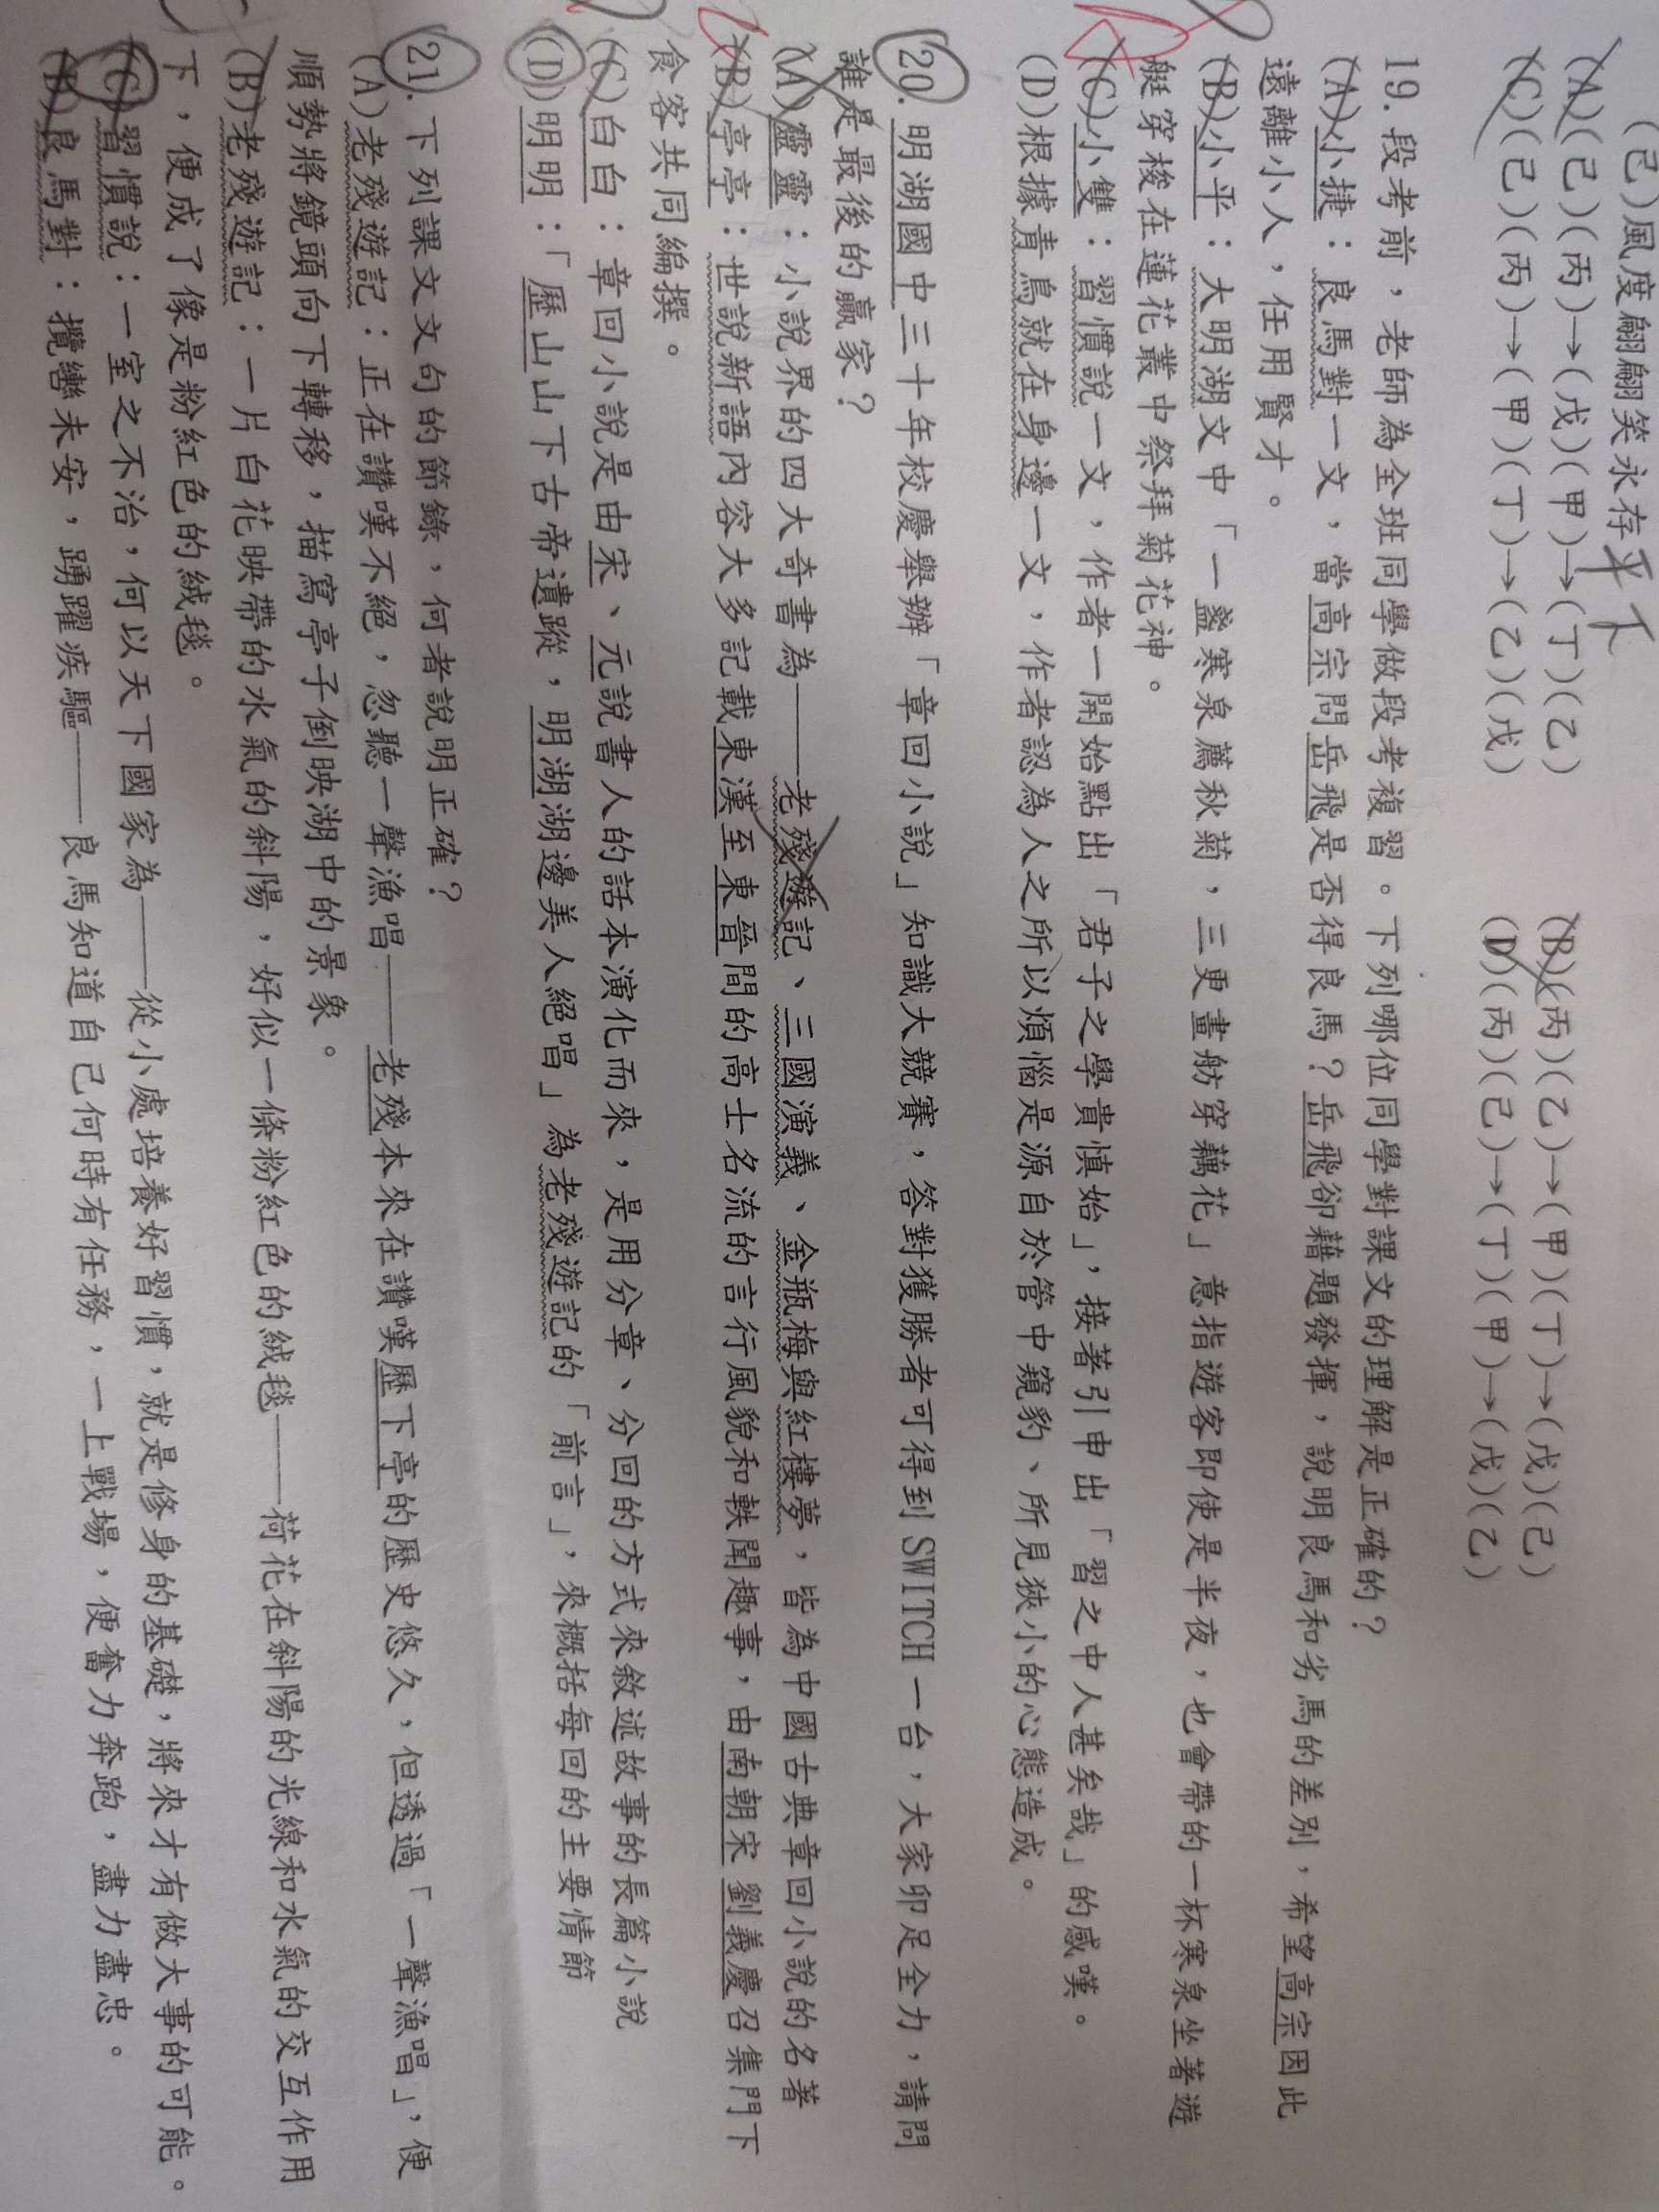 (己)風度翩翩笑永存
(A)(己)(丙)→(戊)(甲)→(丁)(乙)
(B)(丙)(乙)→(甲)(丁)→(戊)(己)
(C)(己)(丙)→(甲)(丁)→(乙)(戊)
(D)(丙)(己)→(丁)(甲)→(戊)(乙)
19.段考前，老師為全班同學做段考複習。下列哪位同學對課文的理解是正確的？
(A)小捷：良馬對一文，當高宗問岳飛是否得良馬？岳飛卻藉題發揮，說明良馬和劣馬的差別，希望高宗因此
遠離小人，任用賢才。
(B)小平：大明湖文中「一盞寒泉薦秋菊，三更畫舫穿藕花」意指遊客即使是半夜，也會帶的一杯寒泉坐著遊
艇穿梭在蓮花叢中祭拜菊花神。
(C)小雙：習慣說一文，作者一開始點出「君子之學貴慎始」，接著引申出「習之中人甚矣哉」的感嘆。
(D)根據青鳥就在身邊一文，作者認為人之所以煩惱是源自於管中窺豹、所見狹小的心態造成。
20.明湖國中三十年校慶舉辦「章回小說」知識大競賽，答對獲勝者可得到SWITCH一台，大家卯足全力，請問
誰是最後的贏家？
(A)靈靈：小說界的四大奇書為——老殘遊記、三國演義、金瓶梅與紅樓夢，皆為中國古典章回小說的名著
(B)亭亭：世說新語內容大多記載東漢至東晉間的高士名流的言行風貌和軼聞趣事，由南朝宋劉義慶召集門下
食客共同編撰。
(C)白白：章回小說是由宋、元說書人的話本演化而來，是用分章、分回的方式來敘述故事的長篇小說
(D)明明：「歷山山下古帝遺蹤，明湖湖邊美人絕唱」為老殘遊記的「前言」，來概括每回的主要情節
21.下列課文文句的節錄，何者說明正確？
(A)老殘遊記：正在讚嘆不絕，忽聽一聲漁唱——老殘本來在讚嘆歷下亭的歷史悠久，但透過「一聲漁唱」，便
順勢將鏡頭向下轉移，描寫亭子倒映湖中的景象。
(B)老殘遊記：一片白花映帶的水氣的斜陽，好似一條粉紅色的絨毯——荷花在斜陽的光線和水氣的交互作用
下，便成了像是粉紅色的絨毯。
(C)習慣說：一室之不治，何以天下國家為——從小處培養好習慣，就是修身的基礎，將來才有做大事的可能。
(D)良馬對：攬轡未安，踴躍疾驅——良馬知道自己何時有任務，一上戰場，便奮力奔跑，盡力盡忠。